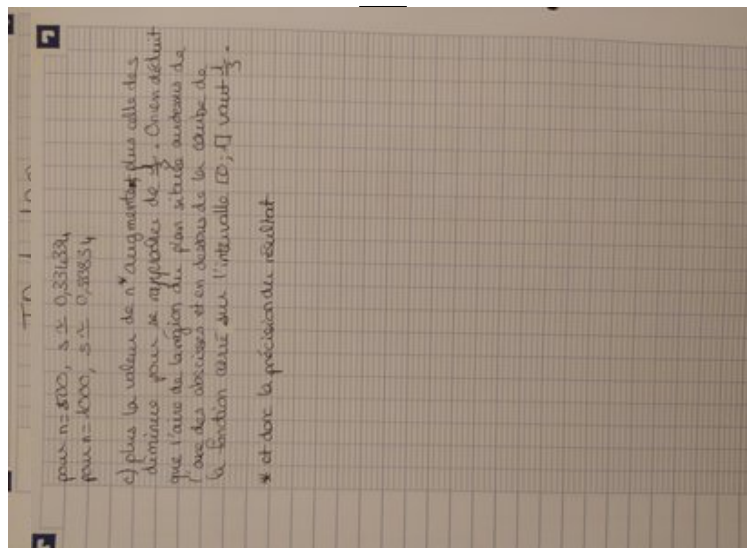 pour n=500, s ≃ 0,334334
pour n=1000, s ≃ 0,33834
c) plus la valeur de n* augmente, plus celle de s
diminue pour se rapprocher de 1/3. On en déduit
que l'aire de la région du plan située au dessus de
l'axe des abscisses et en dessous de la courbe de
la fonction carré sur l'intervalle [0; 1] vaut 1/3.
* et donc la précision du résultat